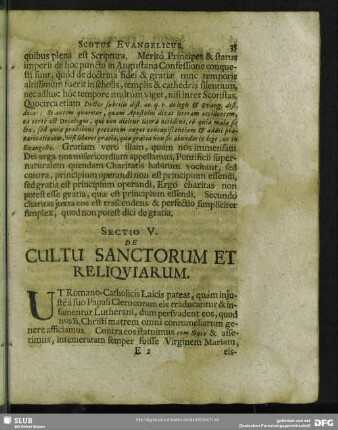 SCOTUS EVANGELICUS. 35
quibus plena est Scriptura. Meritò Principes & status
imperii de hoc puncto in Augustana Confessione conque-
sti sunt, quòd de doctrina fidei & gratiæ tunc temporis
altissimum fuerit in scholis, templis & cathedris silentium,
nec adhuc hoc tempore multum viget, nisi inter Scotistas.
Quocirca etiam Doctor subtilis dist. 40. q. 1. de lege & Evang. dist.
docet: Si autem quæritur, quare Apostolus dicat literam occidentem,
lex, sed quia prohibens peccatum auget concupiscentiam & addit præ-
varicationem, nisi liberet gratia, quæ gratia non sic abundat in lege, ut in
Evangelio. Gratiam verò illam, quam nos immensam
Dei erga nos misericordiam appellamus, Pontificii super-
naturalem quendam Charitatis habitum vocitant, sed
contra, principium operandi non est principium essendi,
sed gratia est principium operandi, Ergò charitas non
potest esse gratia, quæ est principium essendi. Secundò
charitas juxta eos est trascendens & perfectio simpliciter
simplex, quod non potest dici de gratia.
SECTIO V.
DE
CULTU SANCTORUM ET
RELIQVIARUM.
UT Romano-Catholicis Laicis pateat, quàm inju-
stè à suo Papali Clero coram eis traducantur & in-
famentur Lutherani, dum persvadent eos, quod
nos B. Christi matrem omni contumeliarum ge-
nere afficiamus. Contra eos statuimus cum Scoto & asse-
rimus, intemeratam semper fuisse Virginem Mariam,
E 2 ejs-
SLUB
Wir führen Wissen.
gefördert von der
Deutschen Forschungsgemeinschaft
DFG